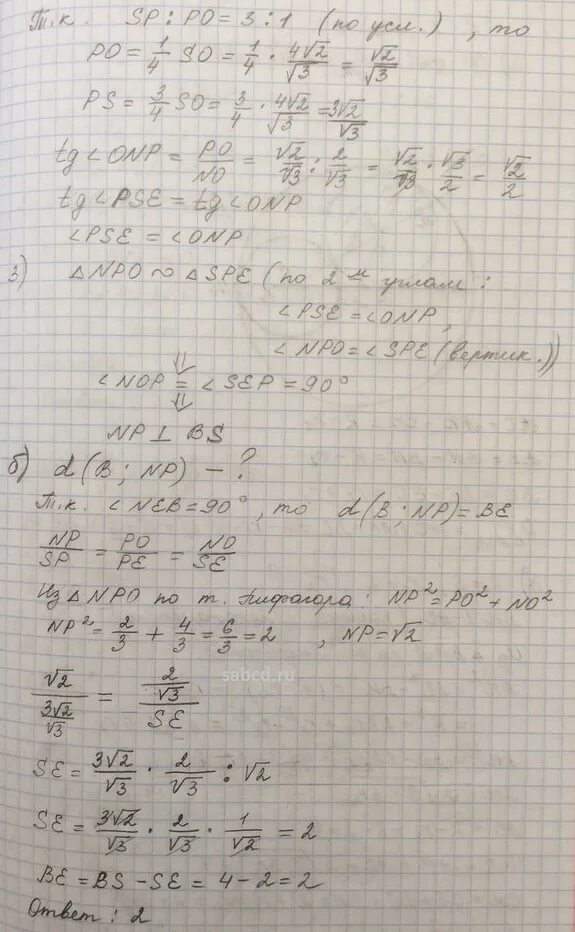 Т.к. SP : PO = 3 : 1 (по усл.), то
PO = 1/4 SO = 1/4 · 4√2/√3 = √2/√3
PS = 3/4 SO = 3/4 · 4√2/√3 = 3√2/√3
tg∠ONP = PO/NO = √2/√3 : 2/√3 = √2/√3 · √3/2 = √2/2
tg∠PSE = tg∠ONP
∠PSE = ∠ONP
3) △NPO ∾ △SPE (по 2 м углам :
∠PSE = ∠ONP,
∠NPO = ∠SPE (вертик.))
⇓
∠NOP = ∠SEP = 90°
⇓
NP ⊥ BS
б) d(B; NP) - ?
Т.к. ∠NEB = 90°, то d(B; NP) = BE
NP/SP = PO/PE = NO/SE
Из △NPO по т. Пифагора: NP² = PO² + NO²
NP² = 2/3 + 4/3 = 6/3 = 2, NP = √2
sabcd.ru
√2/(3√2/√3) = (2/√3)/SE
SE = 3√2/√3 · 2/√3 : √2
SE = 3√2/√3 · 2/√3 · 1/√2 = 2
BE = BS - SE = 4 - 2 = 2
Ответ: 2